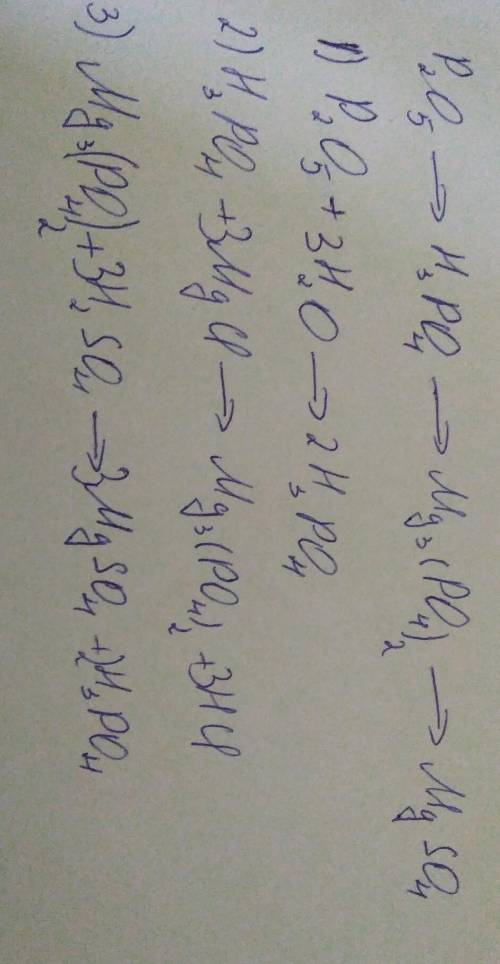 P₂O₅ → H₃PO₄ → Mg₃(PO₄)₂ → MgSO₄
1) P₂O₅ + 3H₂O → 2H₃PO₄
2) H₃PO₄ + 3MgCl → Mg₃(PO₄)₂ + 3HCl
3) Mg₃(PO₄)₂ + 3H₂SO₄ → 3MgSO₄ + 2H₃PO₄